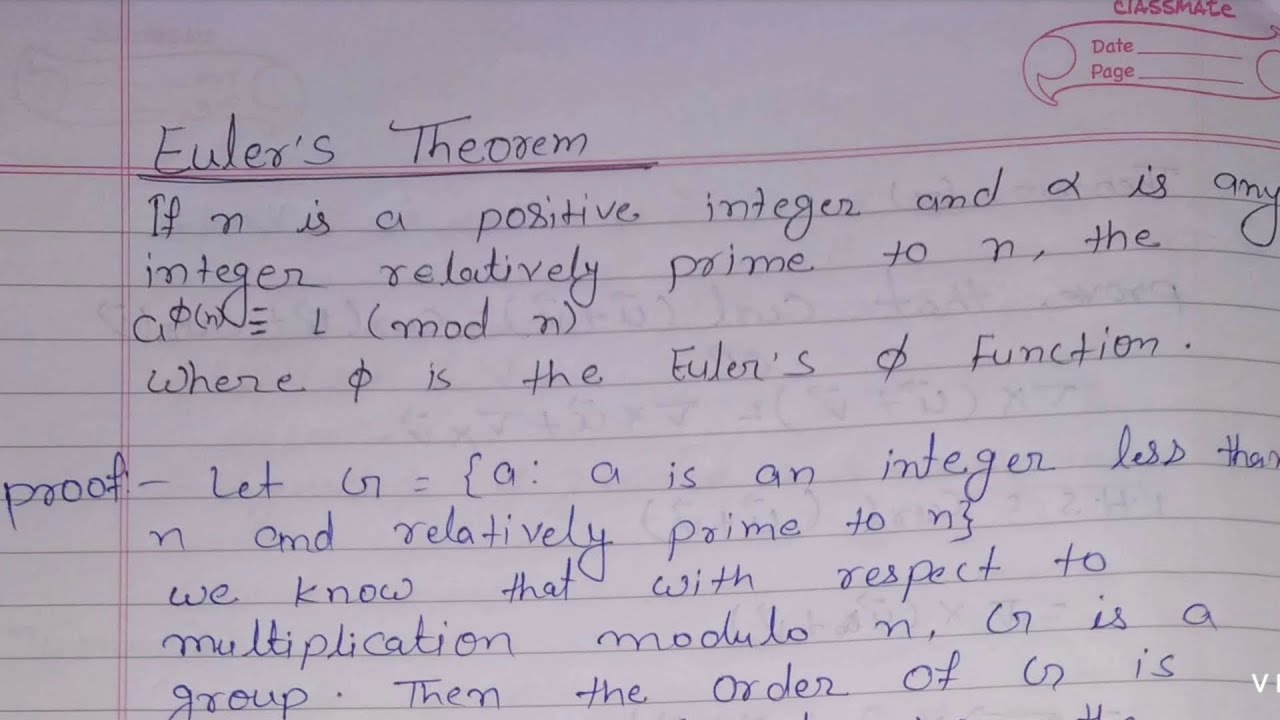 CLASSMATE
Date
Page
Euler's Theorem
If n is a positive integer and a is any
integer relatively prime to n, the
a^ϕ(n) ≡ 1 (mod n)
where ϕ is the Euler's ϕ Function.
proof - Let G = {a: a is an integer less than
n and relatively prime to n}
we know that with respect to
multiplication modulo n, G is a
group. Then the order of G is